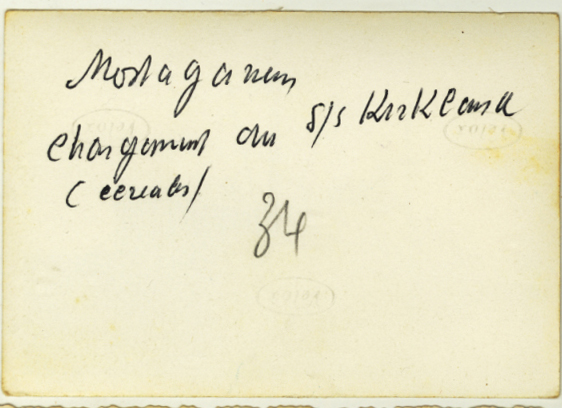 Mostaganem
chargement du s/s Kirkland
(céréales)
34